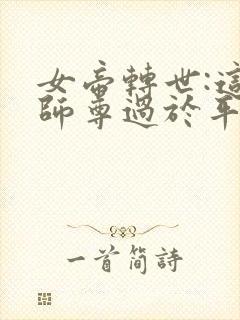 女帝轉世:這
師尊過於年
一首簡詩